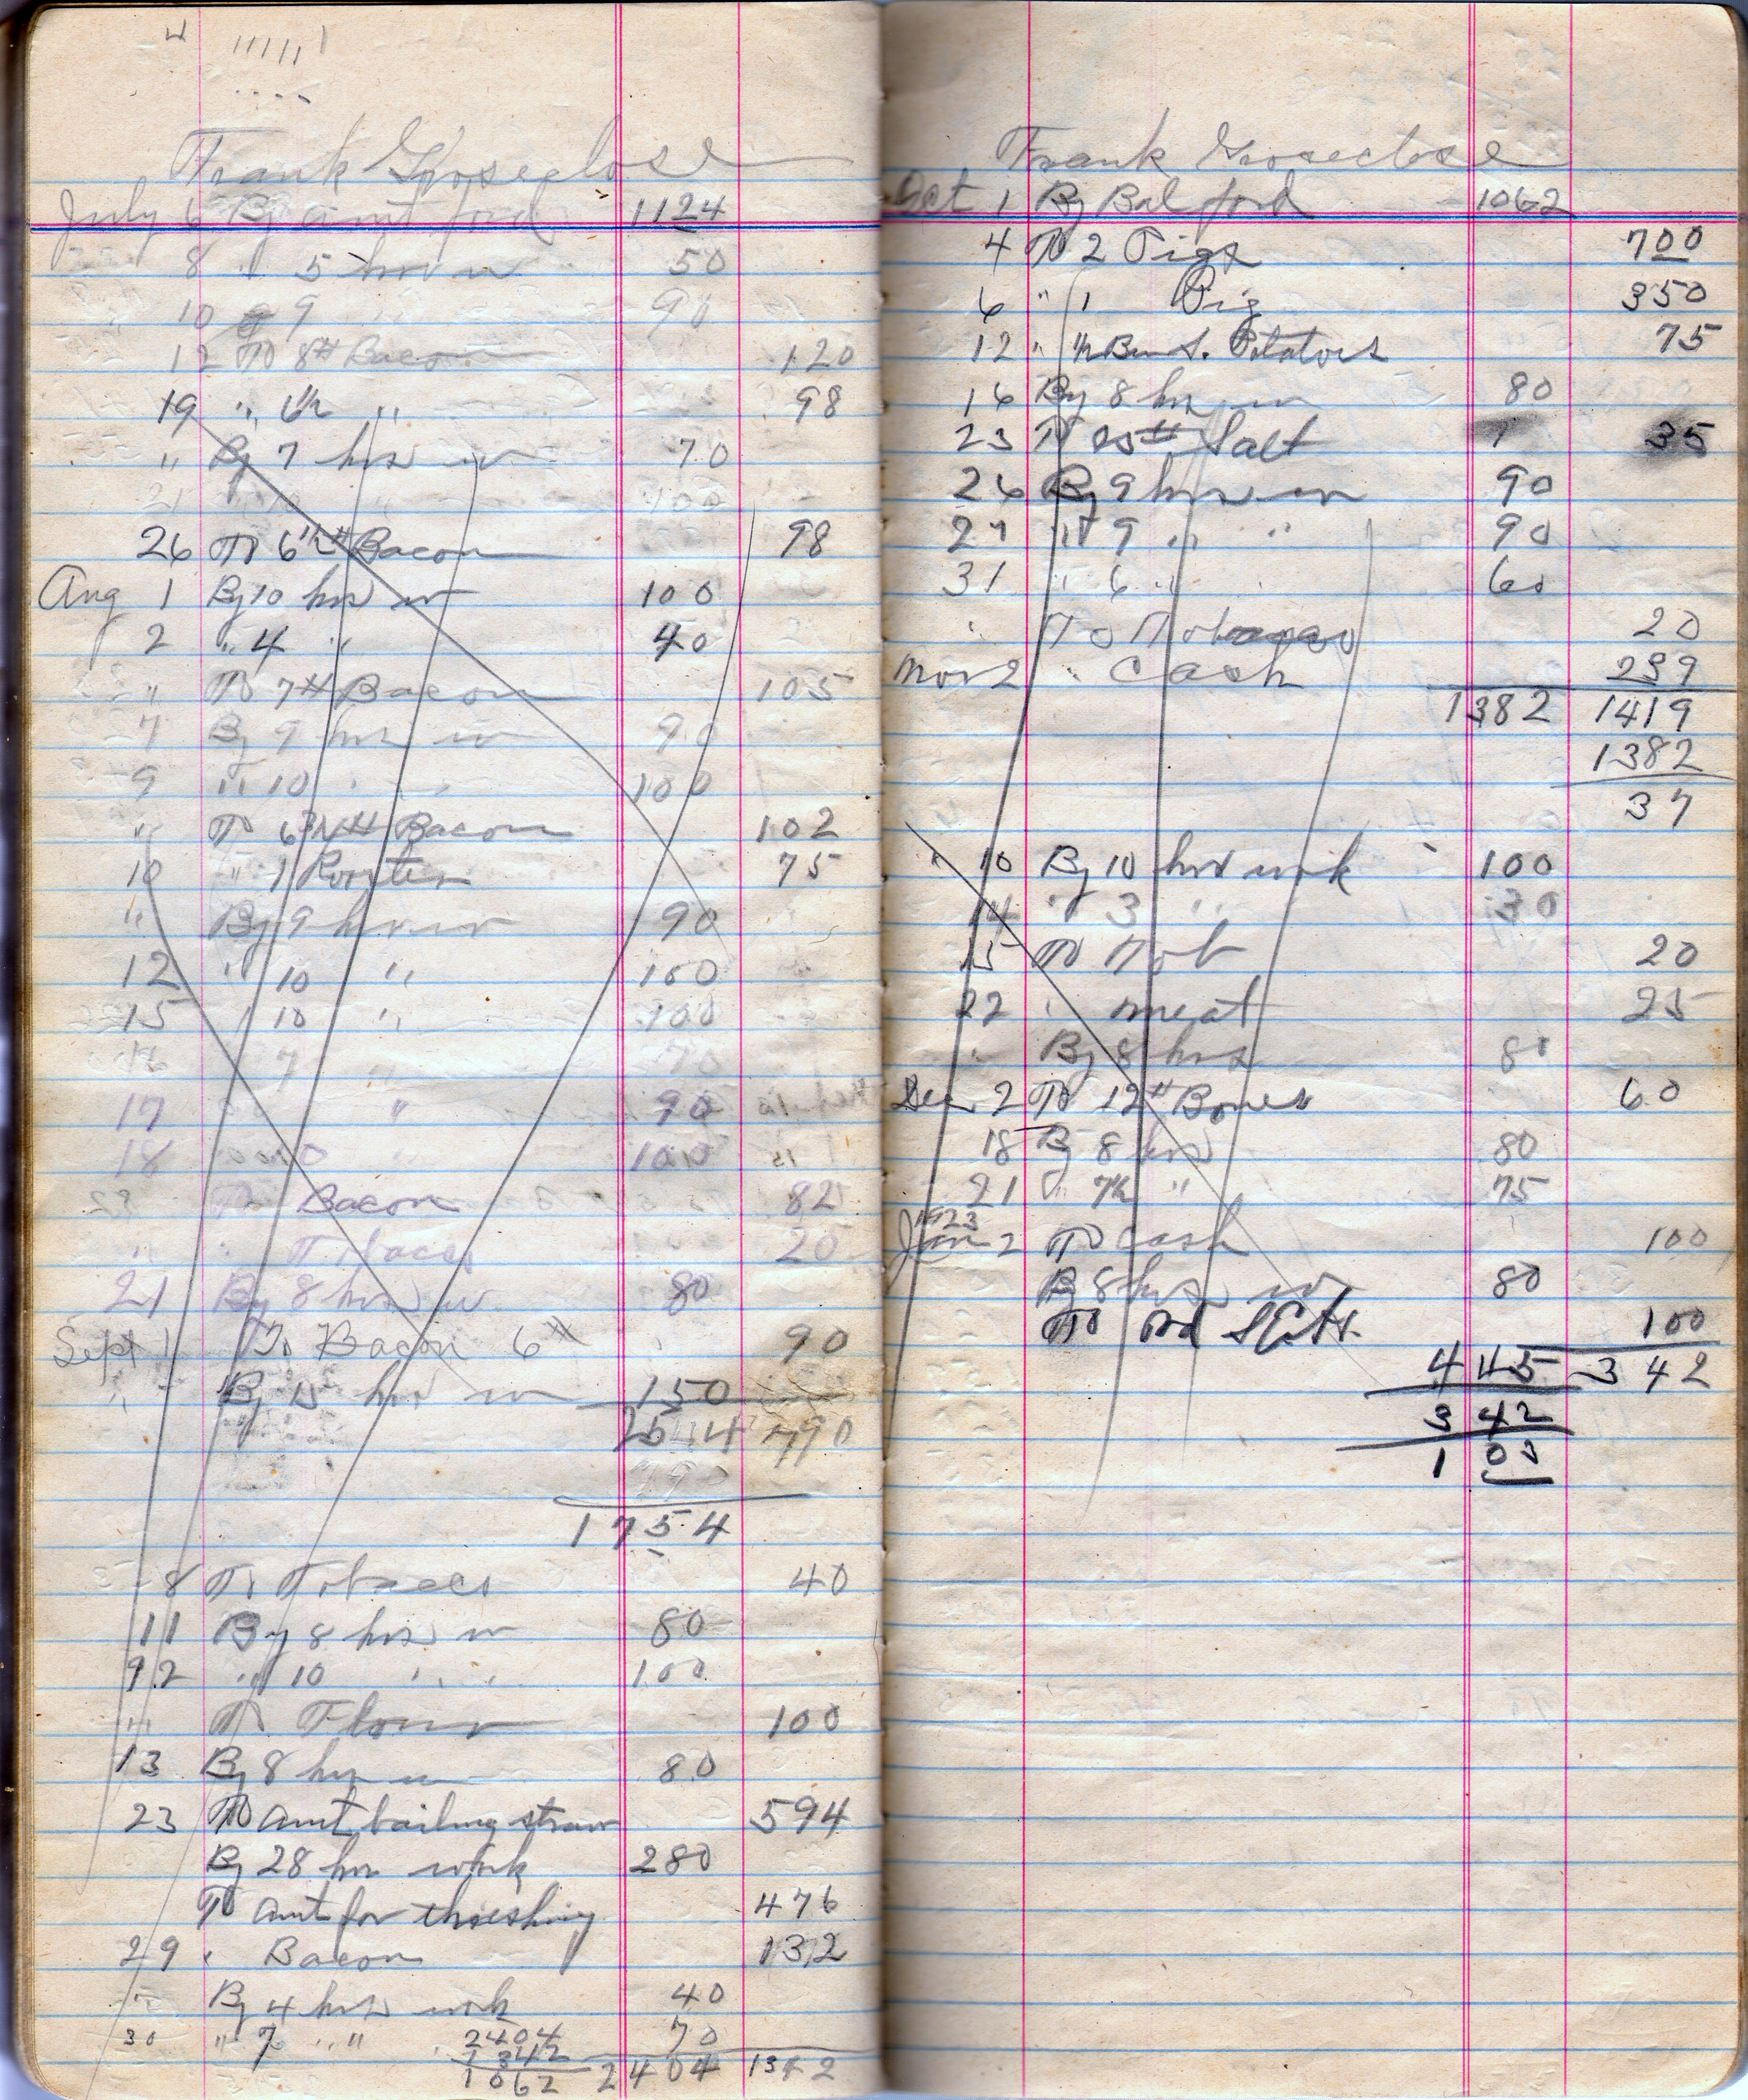 Frank Groseclose
July 6 By amt ford 1124
8 " 5 hrs w 50
10 " 9 90
12 To 8# Bacon 120
19 " 6½ " 98
" By 7 hrs w 70
21 " 10 " 100
26 To 6½# Bacon 98
Aug 1 By 10 hrs w 100
2 " 4 " 40
" To 7# Bacon 105
7 By 9 hrs w 90
9 " 10 " " 100
" To 6¾# Bacon 102
10 " 1 Rooster 75
" By 9 hrs w 90
12 " 10 " 100
15 " 10 " 100
16 7 " 70
17 " 90
18 10 " 100
To Bacon 82
" " Tobacco 20
21 By 8 hrs w 80
Sept 1 To Bacon 6# 90
" By 15 hrs w 150
2544 790
790
1754
8 To Tobacco 40
11 By 8 hrs w 80
12 " 10 " " 100
" To Flour 100
13 By 8 hrs w 80
23 To amt bailing straw 594
By 28 hrs work 280
To amt for threshing 476
29 " Bacon 132
" By 4 hrs work 40
30 " 7 " " 70
2404
1342
1062 2404 1342
Frank Groseclose
Oct 1 By Bal ford 1062
4 To 2 Pigs 700
6 " 1 Pig 350
12 " ½ Bu S. Potatoes 75
16 By 8 hrs w 80
23 To 25# Salt 35
26 By 9 hrs w 90
27 " 9 " " 90
31 " 6 " " 60
" To Tobacco 20
Nov 2 " Cash 239
1382 1419
1382
37
" 10 By 10 hrs work 100
14 " 3 " 30
15 To Tob 20
22 " meat 25
" By 8 hrs 80
Dec 2 To 12# Bones 60
18 By 8 hrs 80
21 " 7½ " 75
1923
Jan 2 To Cash 100
By 8 hrs w 80
To 100
445 342
342
103